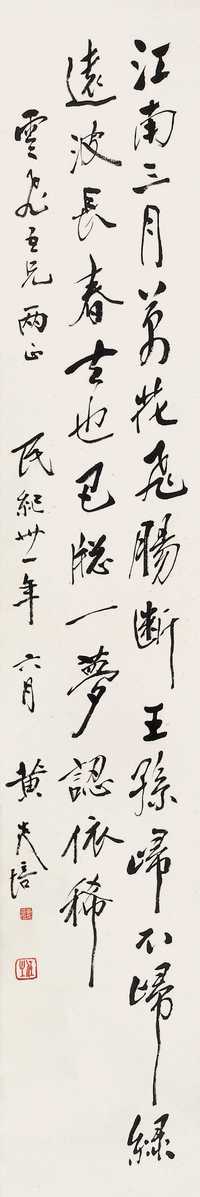 江南三月萬花飛腸斷王孫歸不歸綠
遠波長春去也一夢認依稀
雲飛吾兄兩正 民紀卅一年 六月 黃炎培